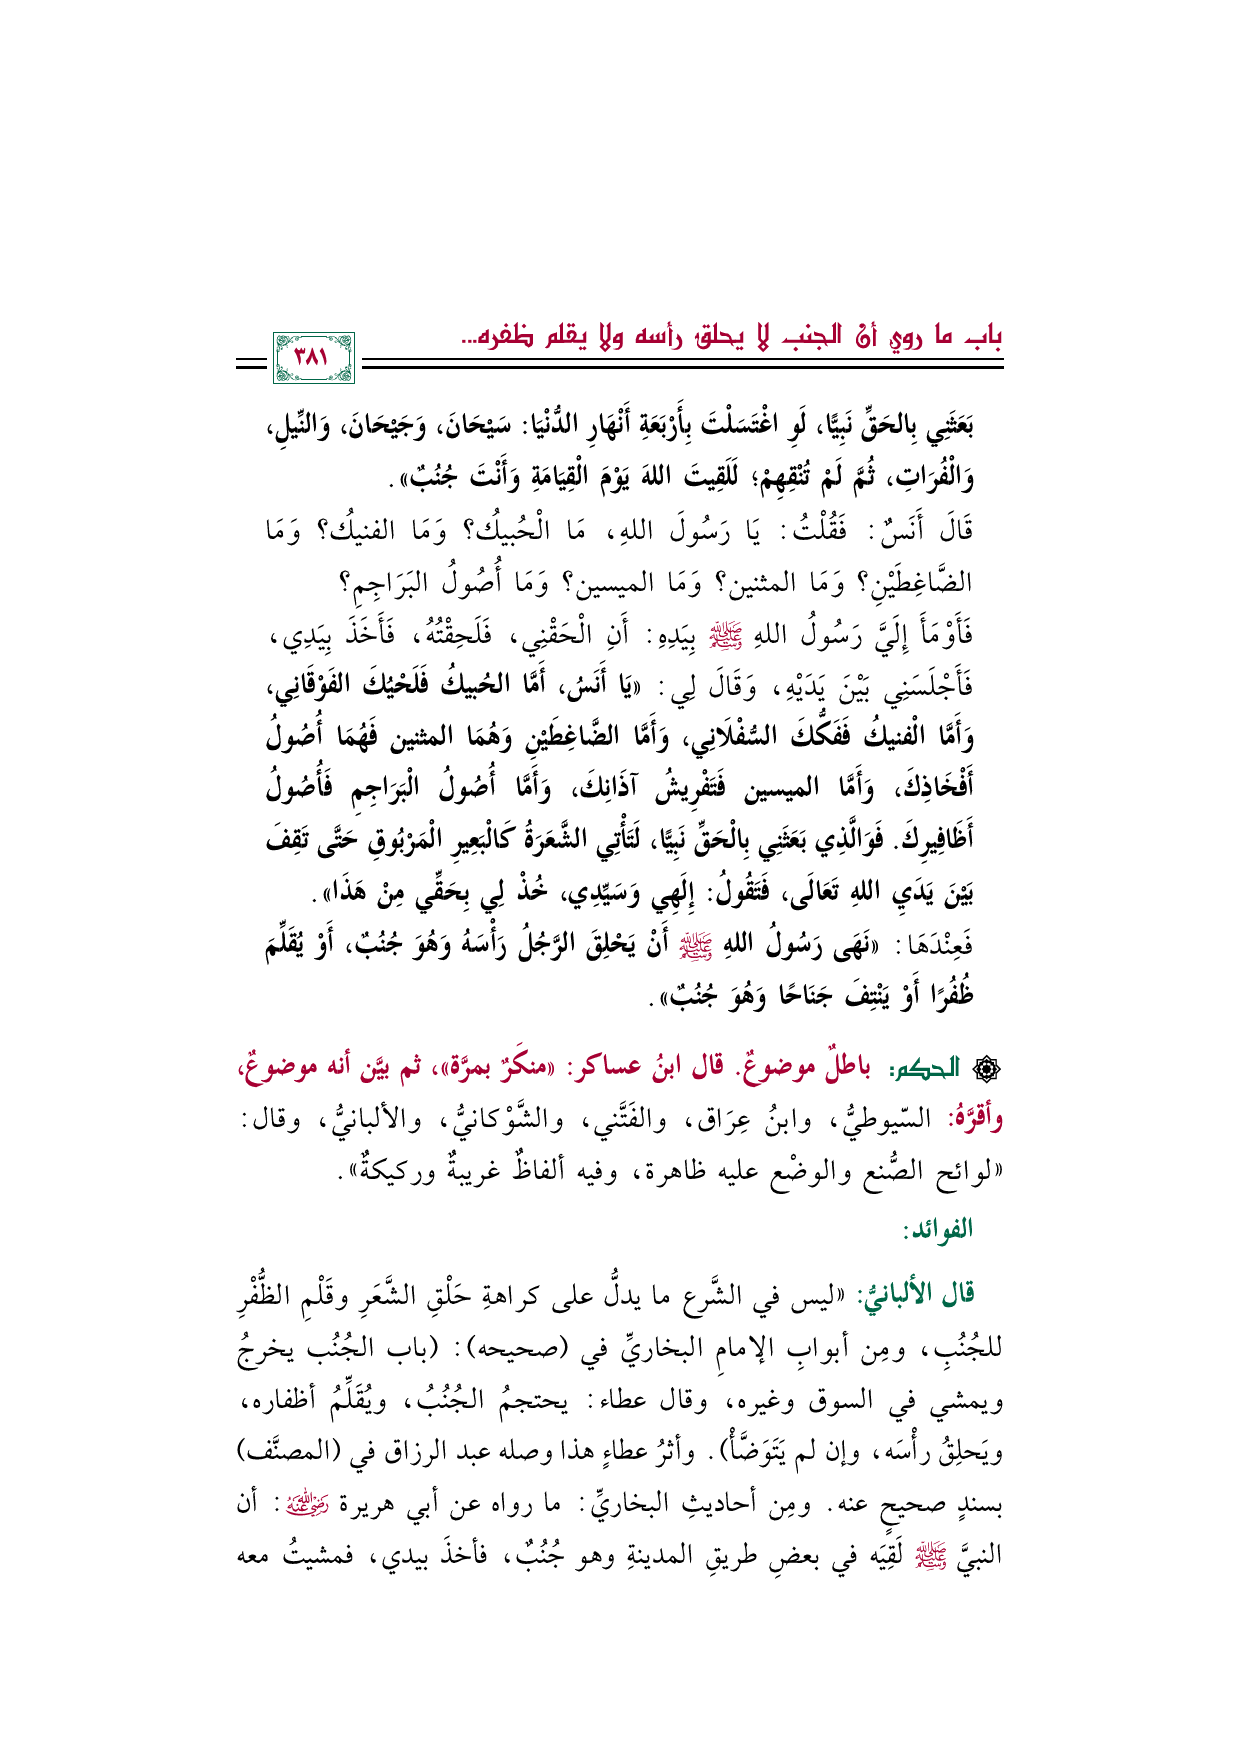 باب ما روي أن الجنب لا يحلق رأسه ولا يقلم ظفره...
٣٨١
بَعَثَنِي بِالحَقِّ نَبِيًّا، لَوِ اغْتَسَلْتَ بِأَرْبَعَةِ أَنْهَارِ الدُّنْيَا: سَيْحَانَ، وَجَيْحَانَ، وَالنِّيلِ،
وَالْفُرَاتِ، ثُمَّ لَمْ تُنْقِهِمْ؛ لَلَقِيتَ اللهَ يَوْمَ الْقِيَامَةِ وَأَنْتَ جُنُبٌ».
قَالَ أَنَسٌ: فَقُلْتُ: يَا رَسُولَ اللهِ، مَا الْحُبيكُ؟ وَمَا الفنيكُ؟ وَمَا
الضَّاغِطَيْنِ؟ وَمَا المثنين؟ وَمَا الميسين؟ وَمَا أُصُولُ البَرَاجِمِ؟
فَأَوْمَأَ إِلَيَّ رَسُولُ اللهِ ﷺ بِيَدِهِ: أَنِ الْحَقْنِي، فَلَحِقْتُهُ، فَأَخَذَ بِيَدِي،
فَأَجْلَسَنِي بَيْنَ يَدَيْهِ، وَقَالَ لِي: «يَا أَنَسُ، أَمَّا الحُبيكُ فَلَحْيُكَ الفَوْقَانِي،
وَأَمَّا الْفنيكُ فَفَكُّكَ السُّفْلَانِي، وَأَمَّا الضَّاغِطَيْنِ وَهُمَا المثنين فَهُمَا أُصُولُ
أَفْخَاذِكَ، وَأَمَّا الميسين فَتَفْرِيشُ آذَانِكَ، وَأَمَّا أُصُولُ الْبَرَاجِمِ فَأُصُولُ
أَظَافِيرِكَ. فَوَالَّذِي بَعَثَنِي بِالْحَقِّ نَبِيًّا، لَتَأْتِي الشَّعَرَةُ كَالْبَعِيرِ الْمَرْبُوقِ حَتَّى تَقِفَ
بَيْنَ يَدَيِ اللهِ تَعَالَى، فَتَقُولُ: إِلَهِي وَسَيِّدِي، خُذْ لِي بِحَقِّي مِنْ هَذَا».
فَعِنْدَهَا: «نَهَى رَسُولُ اللهِ ﷺ أَنْ يَحْلِقَ الرَّجُلُ رَأْسَهُ وَهُوَ جُنُبٌ، أَوْ يُقَلِّمَ
ظُفُرًا أَوْ يَنْتِفَ جَنَاحًا وَهُوَ جُنُبٌ».
الحكم: باطلٌ موضوعٌ. قال ابنُ عساكر: «منكَرٌ بمرَّة»، ثم بيَّن أنه موضوعٌ،
وأقرَّهُ: السّيوطيُّ، وابنُ عِرَاق، والفَتَّني، والشَّوْكانيُّ، والألبانيُّ، وقال:
«لوائح الصُّنع والوضْع عليه ظاهرة، وفيه ألفاظٌ غريبةٌ وركيكةٌ».
الفوائد:
قال الألبانيُّ: «ليس في الشَّرع ما يدلُّ على كراهةِ حَلْقِ الشَّعَرِ وقَلْمِ الظُّفْرِ
للجُنُبِ، ومِن أبوابِ الإمامِ البخاريِّ في (صحيحه): (باب الجُنُب يخرجُ
ويمشي في السوق وغيره، وقال عطاء: يحتجمُ الجُنُبُ، ويُقَلِّمُ أظفاره،
ويَحلِقُ رأْسَه، وإن لم يَتَوَضَّأْ). وأثرُ عطاءٍ هذا وصله عبد الرزاق في (المصنَّف)
بسندٍ صحيحٍ عنه. ومِن أحاديثِ البخاريِّ: ما رواه عن أبي هريرة رضي الله عنه: أن
النبيَّ ﷺ لَقِيَه في بعضِ طريقِ المدينةِ وهو جُنُبٌ، فأخذَ بيدي، فمشيتُ معه